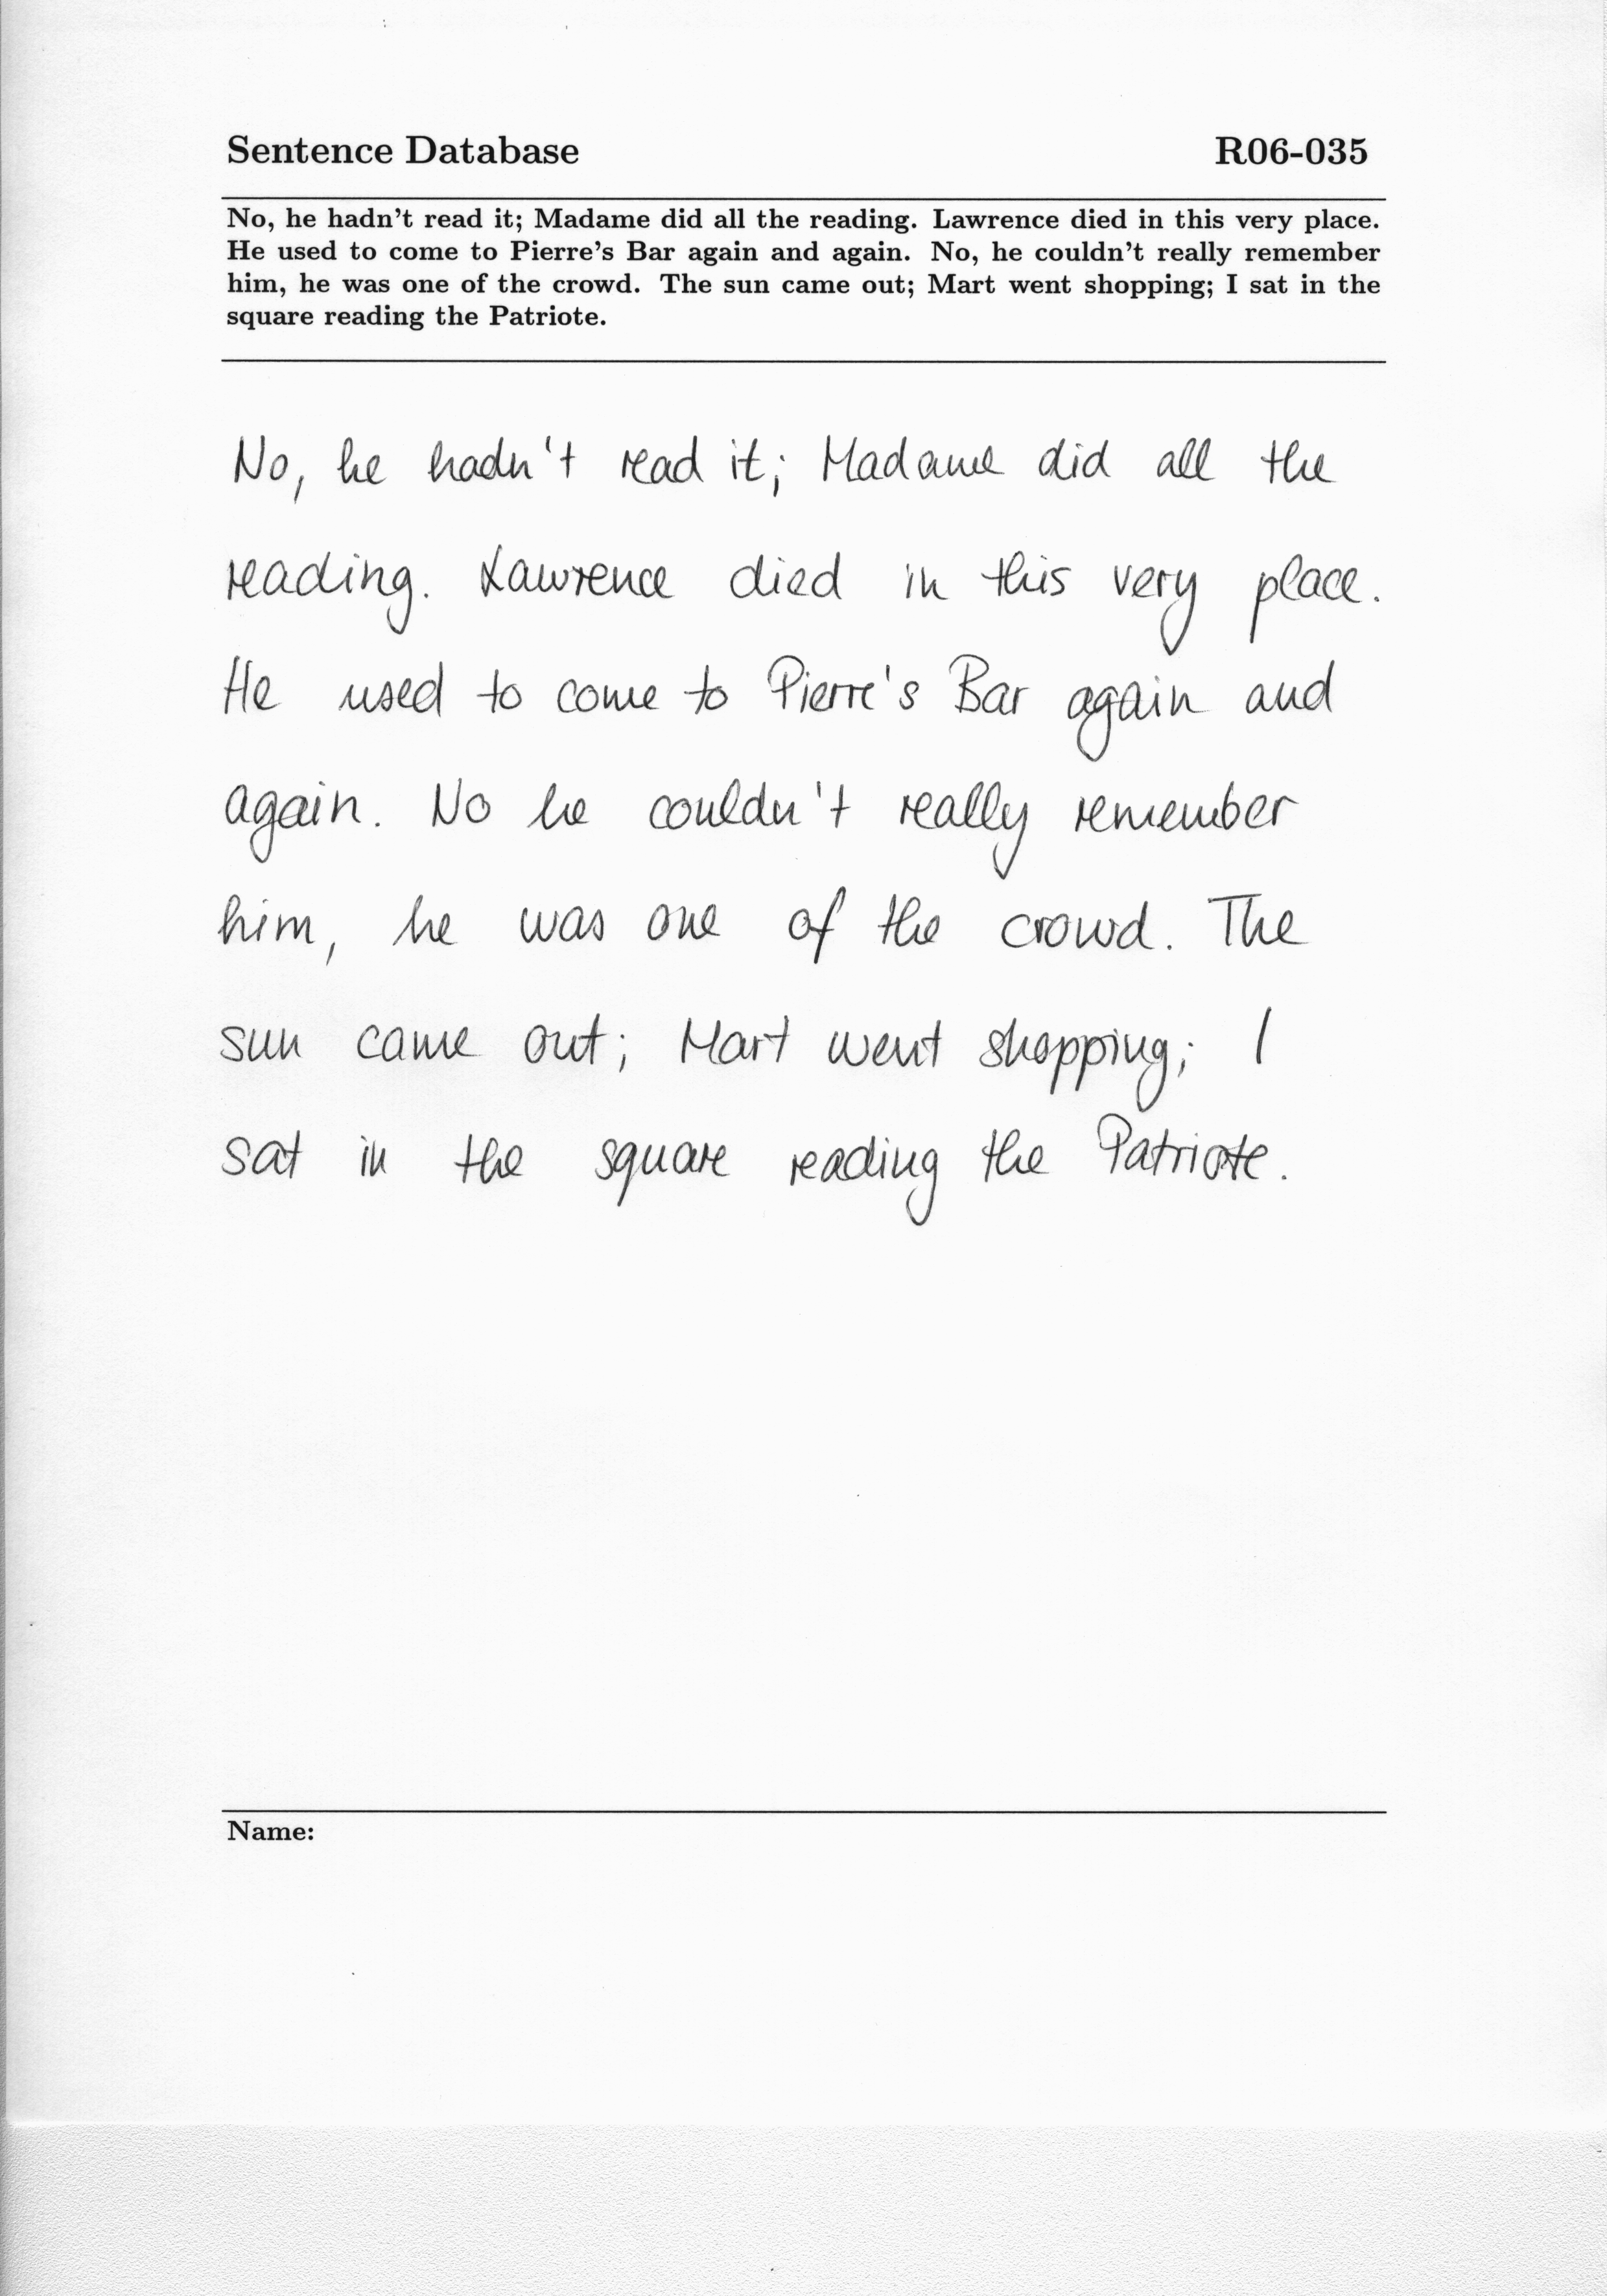 Sentence Database R06-035
No, he hadn't read it; Madame did all the reading. Lawrence died in this very place.
He used to come to Pierre's Bar again and again. No, he couldn't really remember
him, he was one of the crowd. The sun came out; Mart went shopping; I sat in the
square reading the Patriote.
No, he hadn't read it; Madame did all the
reading. Lawrence died in this very place.
He used to come to Pierre's Bar again and
again. No he couldn't really remember
him, he was one of the crowd. The
sun came out; Mart went shopping; I
sat in the square reading the Patriote.
Name: